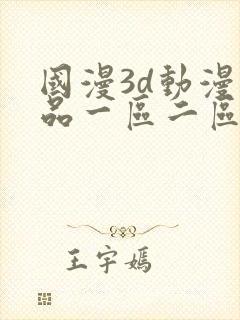 國漫3d動漫
品一區二區
王宇嫣